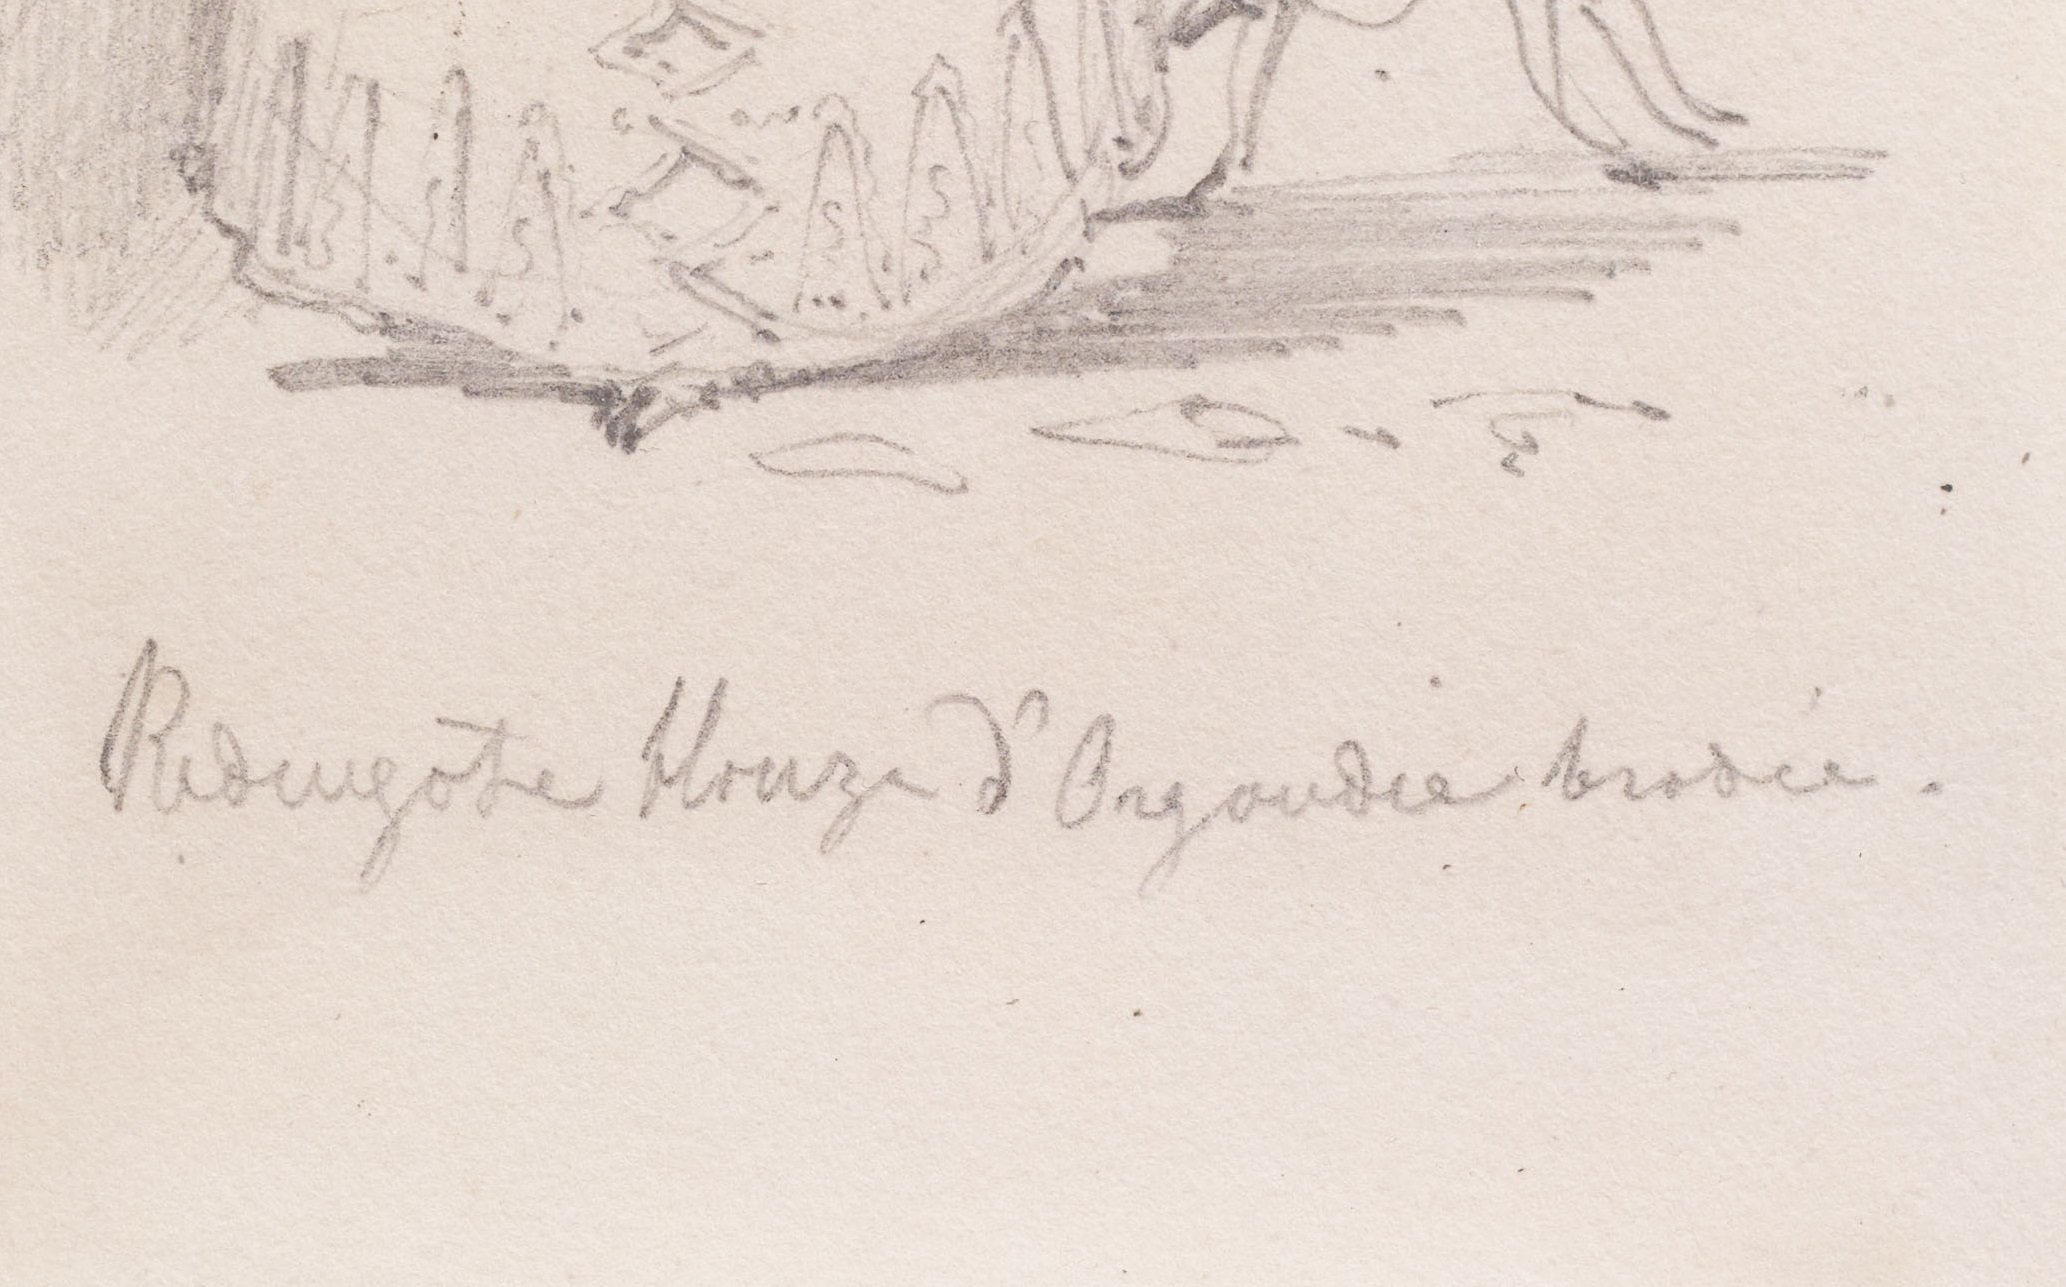 Redingôte blouze d'Organdie brodée.